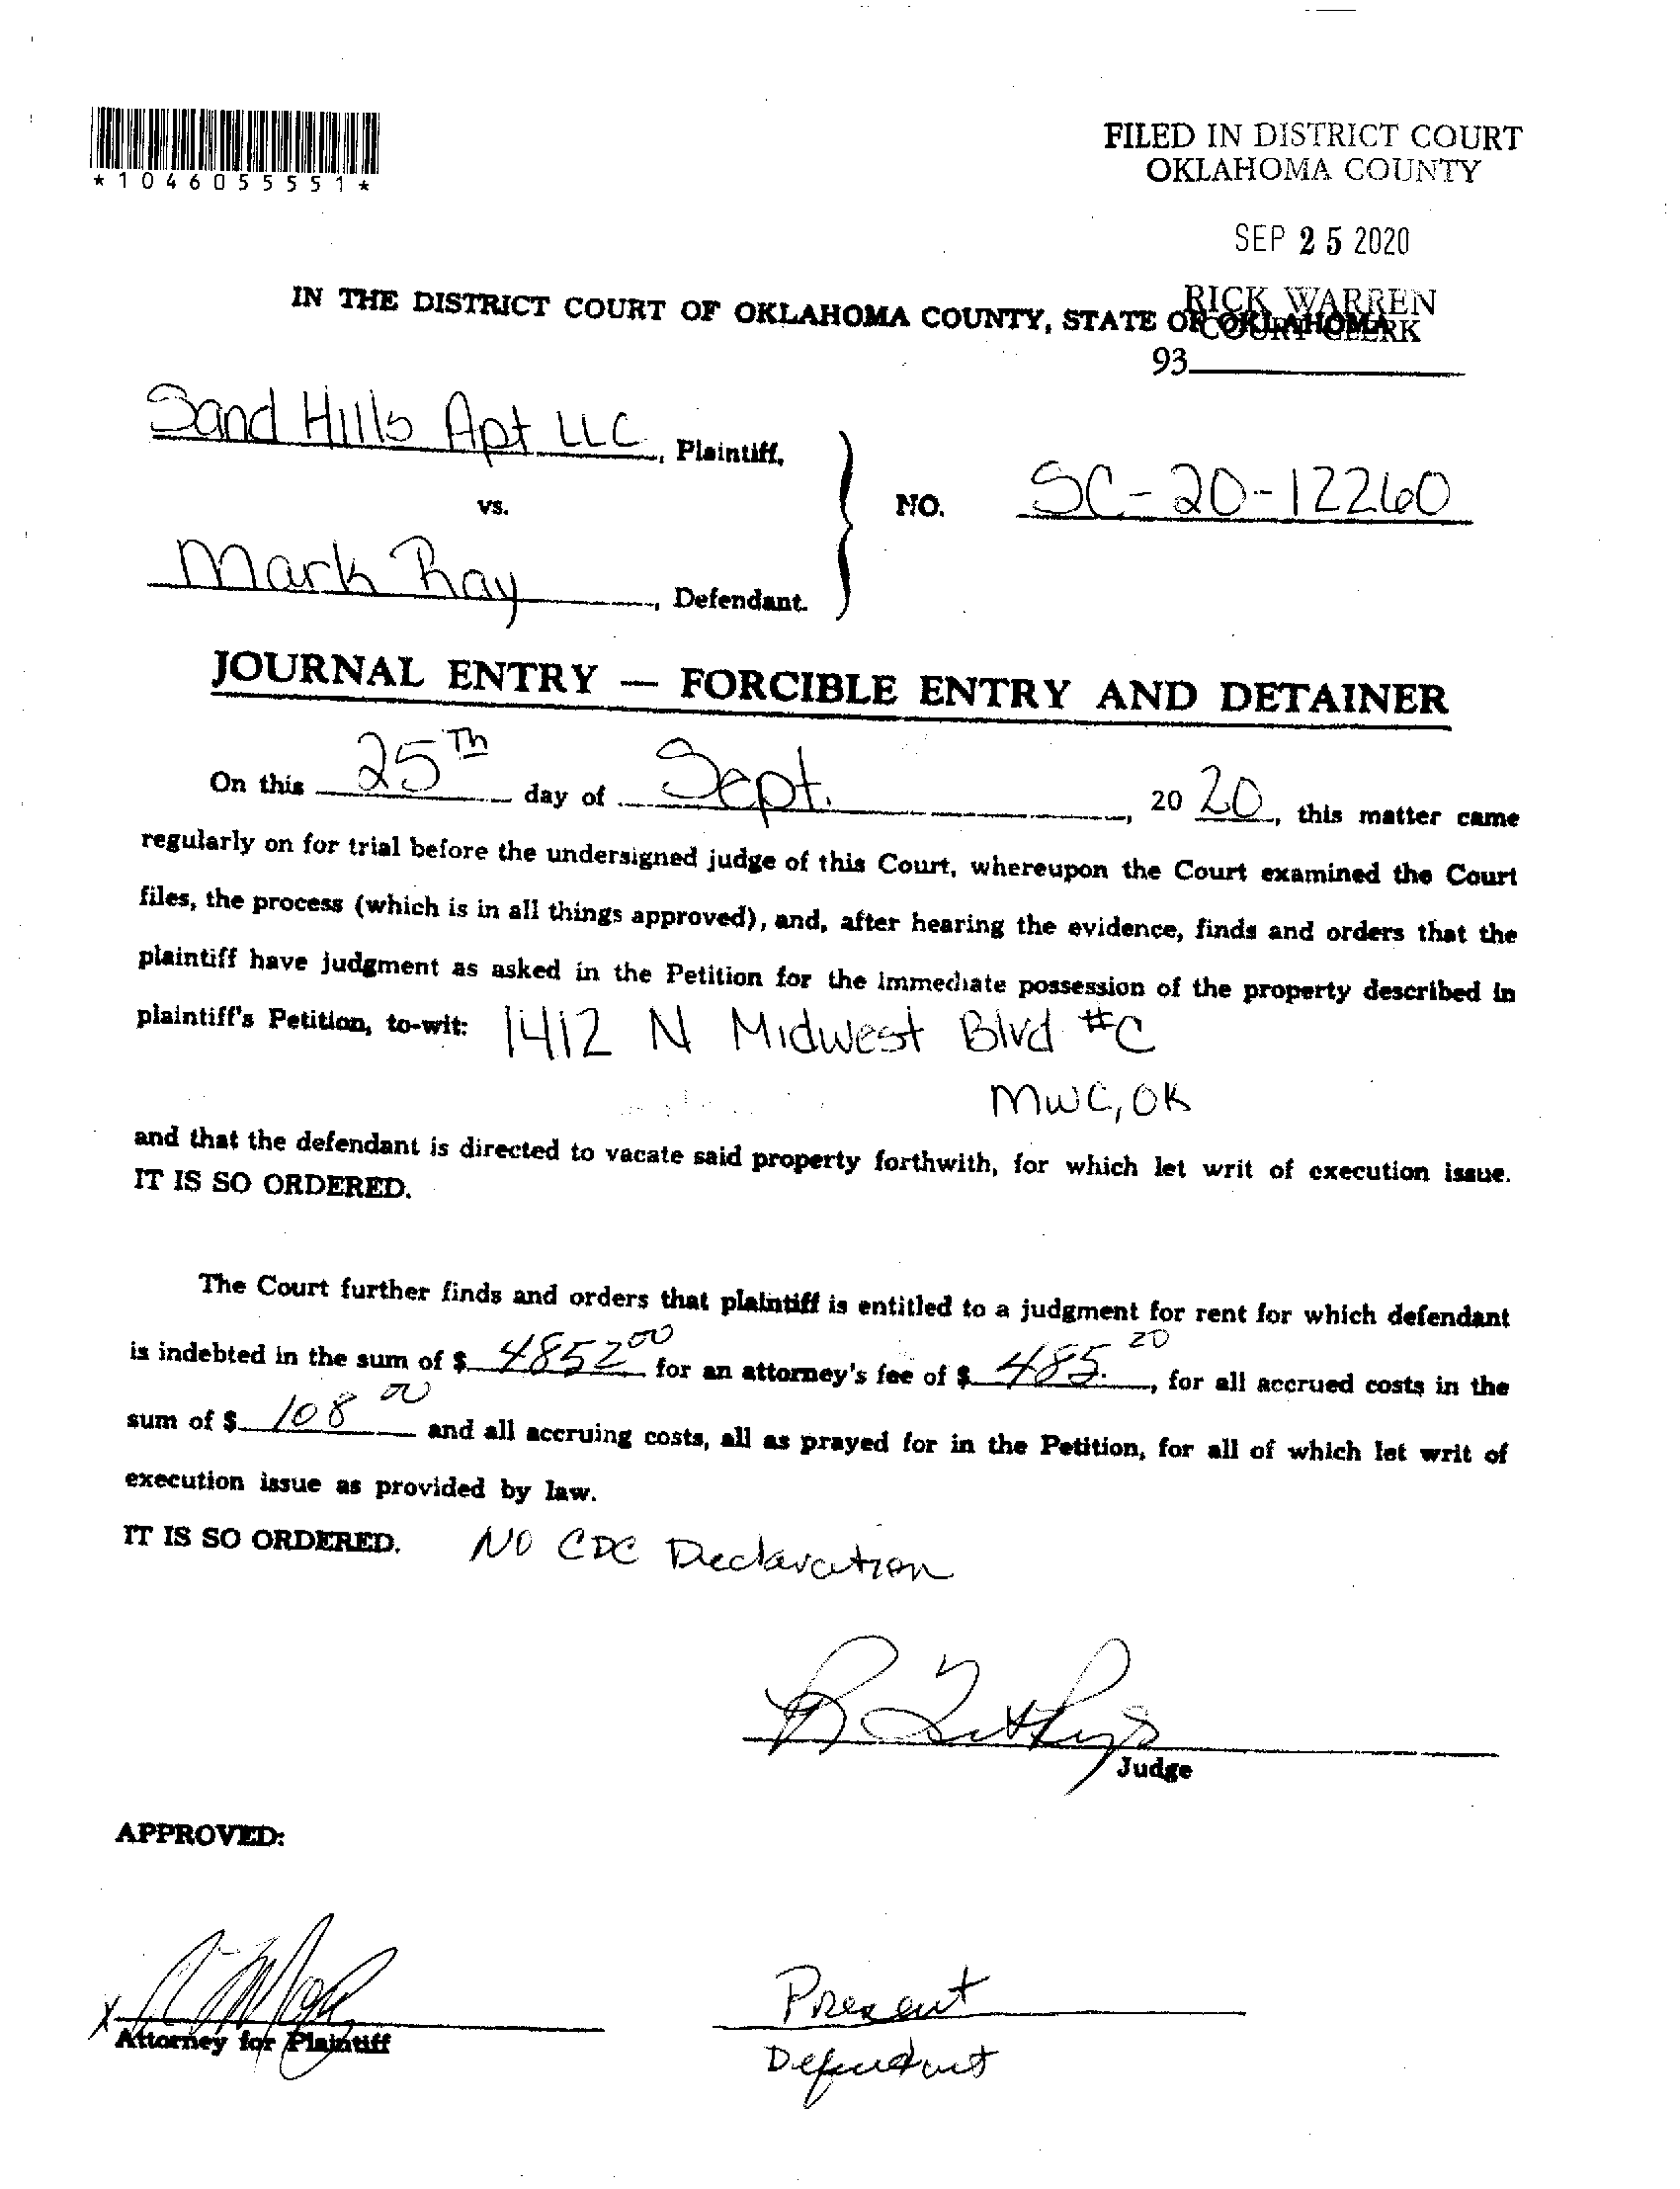 *1046055551*
FILED IN DISTRICT COURT
OKLAHOMA COUNTY
SEP 25 2020
RICK WARREN
COURT CLERK
IN THE DISTRICT COURT OF OKLAHOMA COUNTY, STATE OF OKLAHOMA
93
Sand Hills Apt LLC, Plaintiff,
vs.
NO. SC-20-12260
Mark Ray, Defendant.
JOURNAL ENTRY — FORCIBLE ENTRY AND DETAINER
On this 25Th day of Sept., 20 20, this matter came
regularly on for trial before the undersigned judge of this Court, whereupon the Court examined the Court
files, the process (which is in all things approved), and, after hearing the evidence, finds and orders that the
plaintiff have judgment as asked in the Petition for the immediate possession of the property described in
plaintiff's Petition, to-wit: 1412 N Midwest Blvd #C
MWC, OK
and that the defendant is directed to vacate said property forthwith, for which let writ of execution issue.
IT IS SO ORDERED.
The Court further finds and orders that plaintiff is entitled to a judgment for rent for which defendant
is indebted in the sum of $ 4852 00 for an attorney's fee of $ 485. 20, for all accrued costs in the
sum of $ 108 00 and all accruing costs, all as prayed for in the Petition, for all of which let writ of
execution issue as provided by law.
IT IS SO ORDERED. NO CDC Declaration
Judge
APPROVED:
X
Attorney for Plaintiff
Present
Defendant